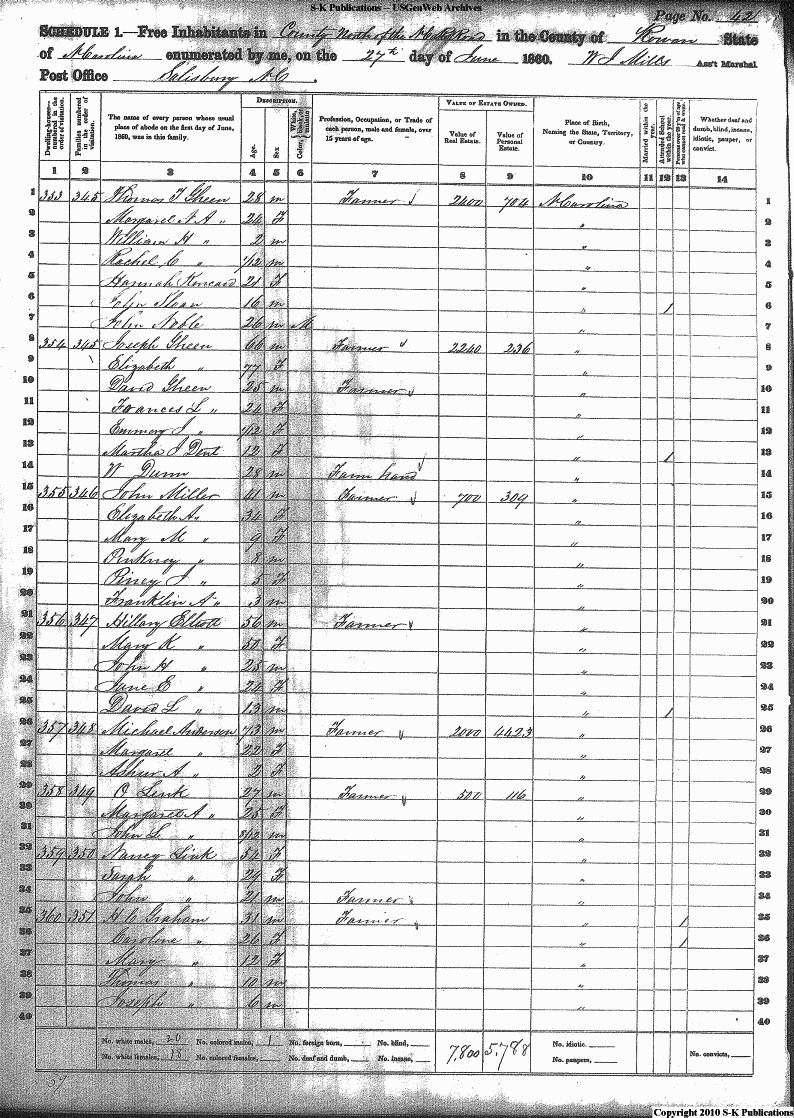 S-K Publications -- USGenWeb Archives
Page No. 42
SCHEDULE 1.—Free Inhabitants in County North of the in the County of Rowan State
of N Carolina enumerated by me, on the 27th day of June 1860. W J Mills Ass't Marshal
Post Office Salisbury N.C.
Dwelling-houses—numbered in the order of visitation. Families numbered in the order of visitation. The name of every person whose usual place of abode on the first day of June, 1860, was in this family. DESCRIPTION. Age. Sex. Color, White, black, or mulatto. Profession, Occupation, or Trade of each person, male and female, over 15 years of age. VALUE OF ESTATE OWNED. Value of Real Estate. Value of Personal Estate. Place of Birth, Naming the State, Territory, or Country. Married within the year. Attended School within the year. Persons over 20 y'rs of age who cannot read & write. Whether deaf and dumb, blind, insane, idiotic, pauper, or convict.
1 2 3 4 5 6 7 8 9 10 11 12 13 14
1 353 345 Thomas J Gheen 28 m Farmer 2400 704 N Carolina 1
2 Margaret N A " 24 F " 2
3 William H " 2 m " 3
4 Rachel C " 1/12 m " 4
5 Hannah Kencaid 21 F " 5
6 John Sloan 16 m " 1 6
7 John Noble 26 m M " 7
8 354 345 Joseph Gheen 66 m Farmer 2240 236 " 8
9 Elizabeth " 77 F " 9
10 David Gheen 25 m Farmer " 10
11 Frances L " 24 F " 11
12 Emmory J " 7/12 F " 12
13 Martha J Dent 12 F " 1 13
14 W Dunn 28 m Farm hand " 14
15 355 346 John Miller 41 m Farmer 700 309 " 15
16 Elizabeth A " 34 F " 16
17 Mary M " 9 F " 17
18 Pinkney " 8 m " 18
19 Piney J " 5 F " 19
20 Franklin A " 3 m " 20
21 356 347 Hillary Elliott 56 m Farmer " 21
22 Mary K " 50 F " 22
23 John H " 25 m " 23
24 Jane E " 24 F " 24
25 David L " 13 m " 1 25
26 357 348 Michael Anderson 73 m Farmer 2000 4423 " 26
27 Margaret " 22 F " 27
28 A " 2 F " 28
29 358 349 O Link 27 m Farmer 500 116 " 29
30 Margaret A " 25 F " 30
31 John L " 3/12 m " 31
32 359 350 Nancy Link 54 F " 32
33 Sarah " 29 F " 33
34 John " 21 m Farmer " 34
35 360 351 H C Graham 31 m Farmer " 1 35
36 Caroline " 26 F " 1 36
37 Mary " 12 F " 37
38 Thomas " 10 m " 38
39 Joseph " 6 m " 39
40 40
No. white males, 20 No. colored males, 1 No. foreign born, No. blind, 7,800 5,788 No. idiotic. No. convicts,
No. white females, 18 No. colored females, No. deaf and dumb, No. insane, No. paupers,
Copyright 2010 S-K Publications